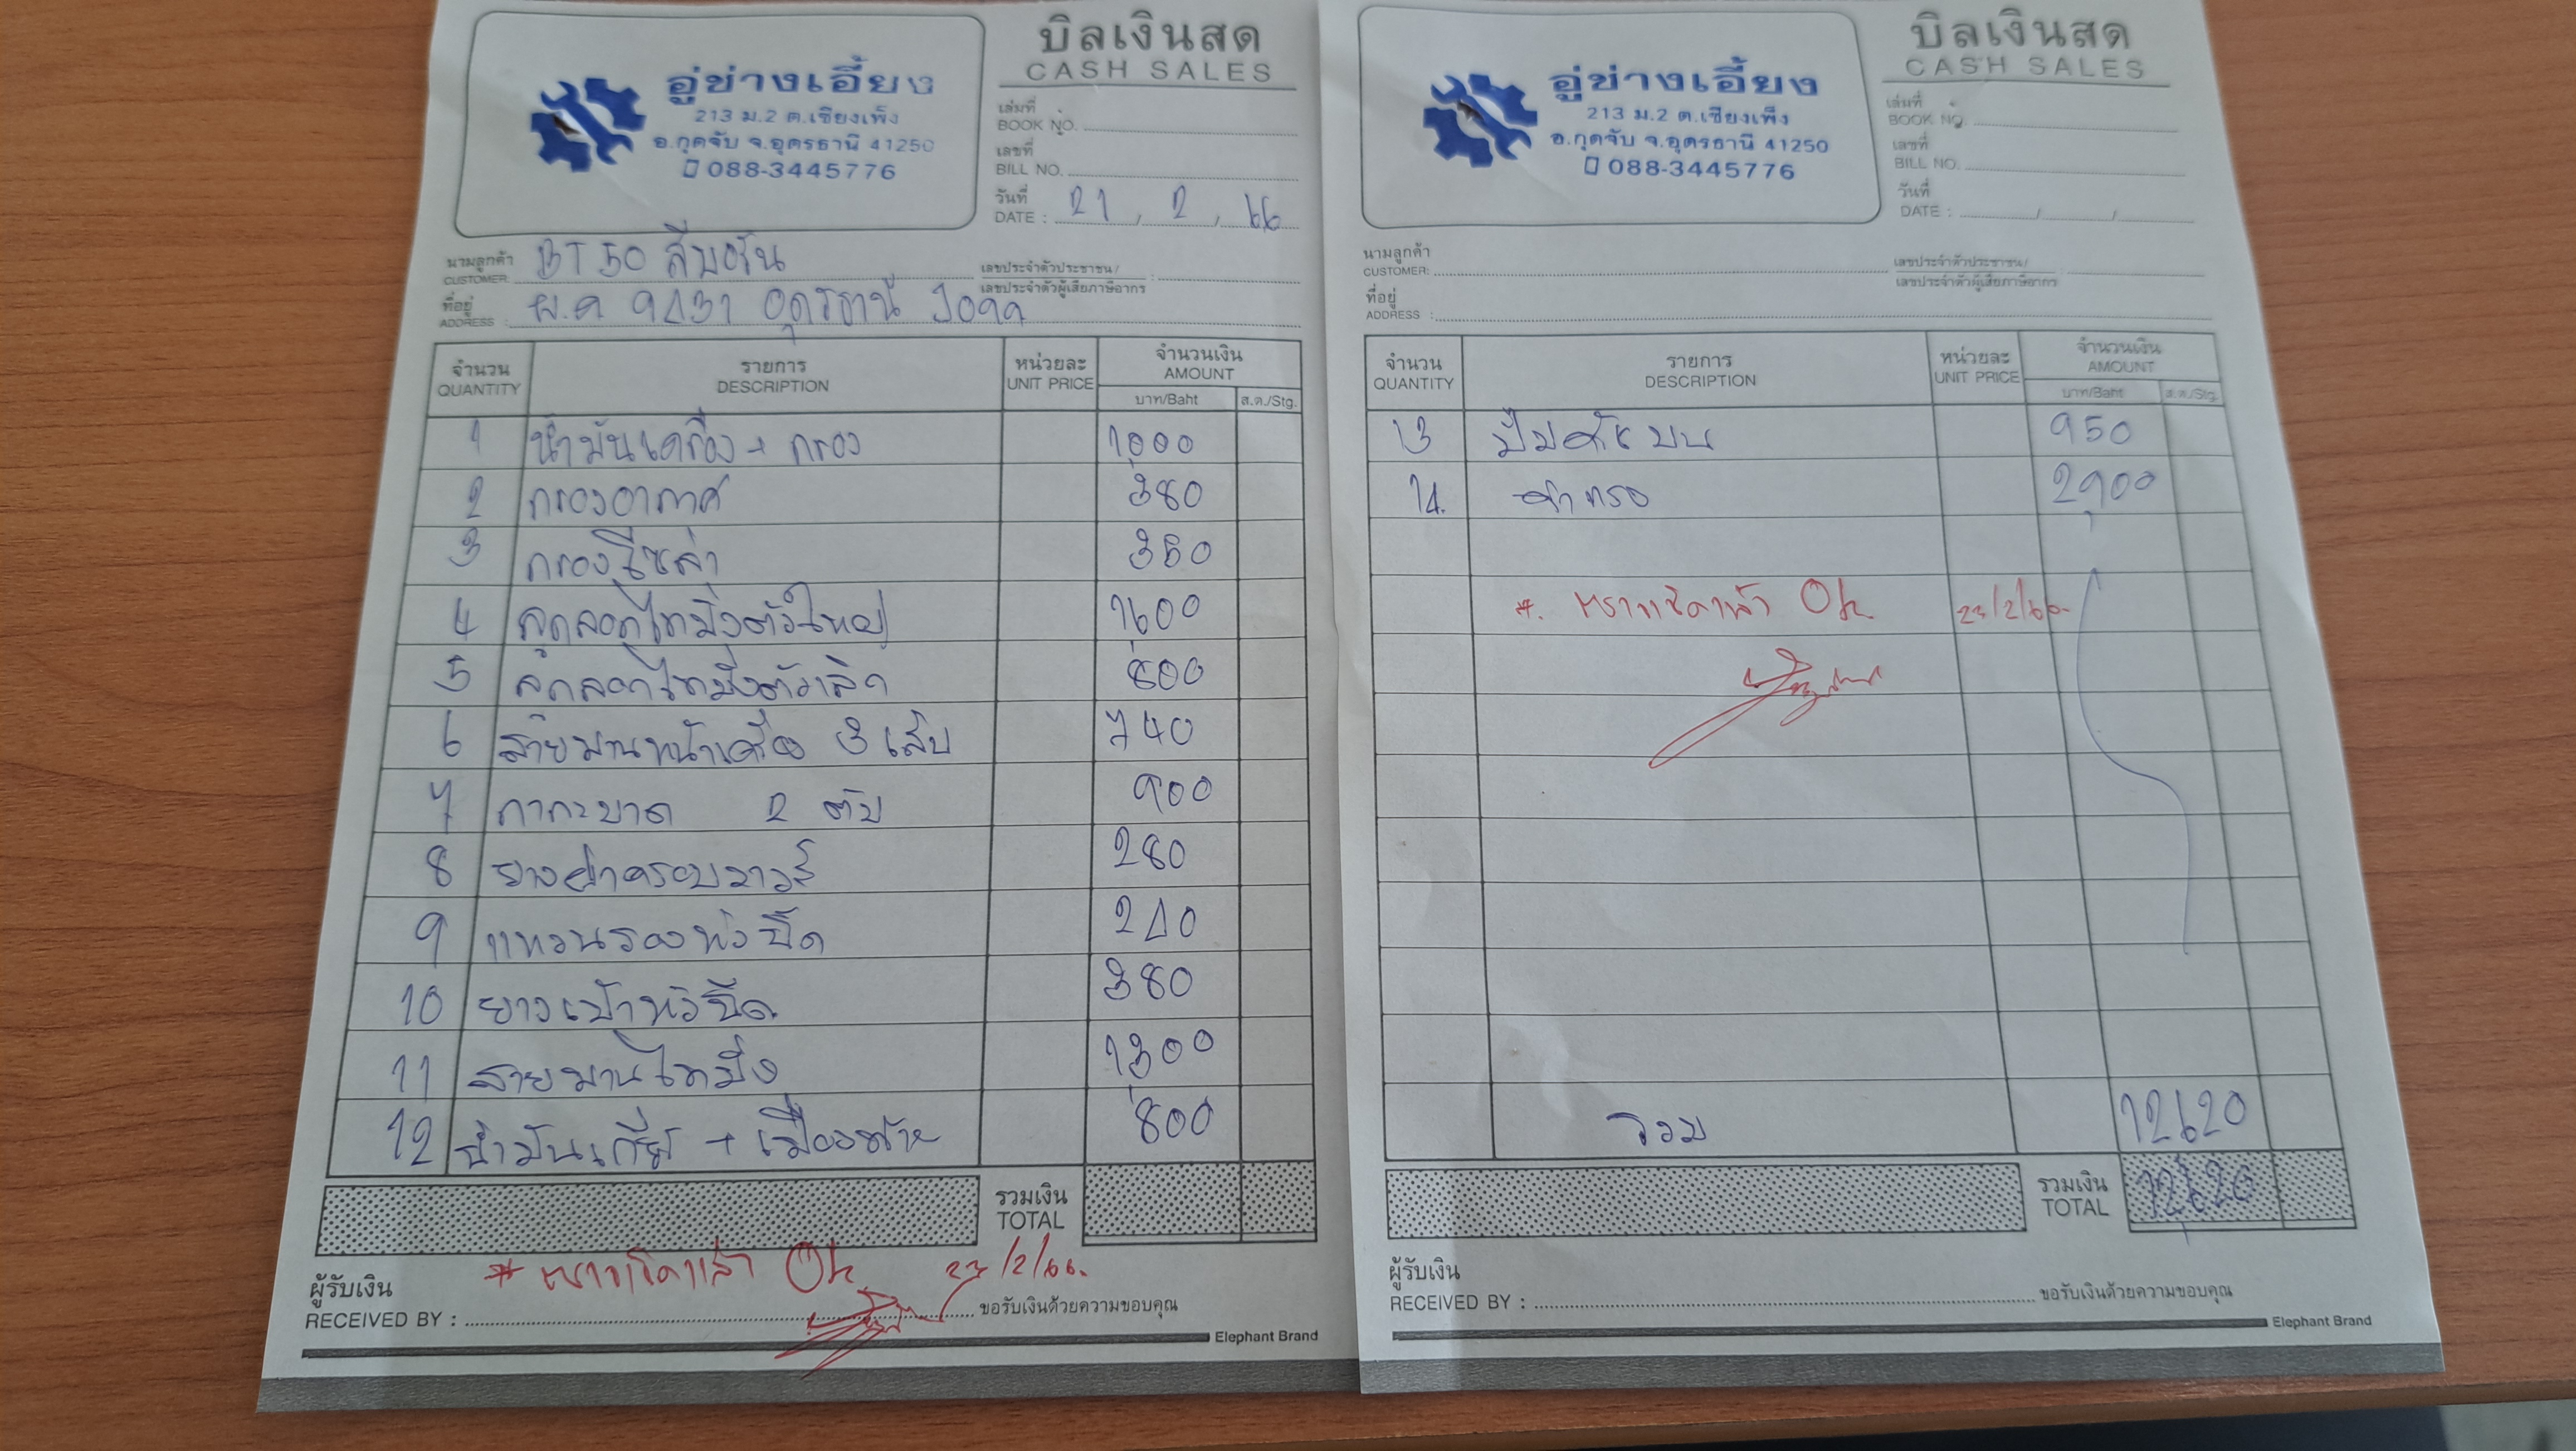 อู่ช่างเอี้ยง
213 ม.2 ต.เชียงเพ็ง
อ.กุดจับ จ.อุดรธานี 41250
088-3445776
บิลเงินสด
CASH SALES
เล่มที่
BOOK NO.
เลขที่
BILL NO.
วันที่
DATE : 21 / 2 / 66
นามลูกค้า
CUSTOMER: BT 50 สีบรอน
เลขประจำตัวประชาชน/
เลขประจำตัวผู้เสียภาษีอากร
ที่อยู่
ADDRESS : 9431 อุดรธานี
จำนวน รายการ หน่วยละ จำนวนเงิน
QUANTITY DESCRIPTION UNIT PRICE AMOUNT
บาท/Baht ส.ต./Stg.
1 น้ำมันเครื่อง + กรอง 1000
2 กรองอากาศ 380
3 กรองโซล่า 350
4 ลูกลอกไทมิ่งตัวใหญ่ 1600
5 ลูกลอกไทมิ่งตัวเล็ก 800
6 สายพานหน้าเครื่อง 3 เส้น 740
7 กากะบาด 2 ตับ 900
8 ยางฝาครอบวาวล์ 280
9 แหวนรองหัวฉีด 240
10 ยางเบ้าหัวฉีด 380
11 สายพานไทมิ่ง 1300
12 น้ำมันเกียร์ + เฟืองท้าย 800
รวมเงิน
TOTAL
* ตรวจเช็คแล้ว Ok 23/2/66.
ผู้รับเงิน
RECEIVED BY : ขอรับเงินด้วยความขอบคุณ
Elephant Brand
อู่ช่างเอี้ยง
213 ม.2 ต.เชียงเพ็ง
อ.กุดจับ จ.อุดรธานี 41250
088-3445776
บิลเงินสด
CASH SALES
เล่มที่
BOOK NO.
เลขที่
BILL NO.
วันที่
DATE : / /
นามลูกค้า
CUSTOMER:
เลขประจำตัวประชาชน/
เลขประจำตัวผู้เสียภาษีอากร
ที่อยู่
ADDRESS :
จำนวน รายการ หน่วยละ จำนวนเงิน
QUANTITY DESCRIPTION UNIT PRICE AMOUNT
บาท/Baht ส.ต./Stg.
13 ปั๊มครัชบน 950
14. 2900
*. ตรวจเช็คแล้ว Ok 23/2/66.
รวม 12620
รวมเงิน
TOTAL 12620
ผู้รับเงิน
RECEIVED BY : ขอรับเงินด้วยความขอบคุณ
Elephant Brand